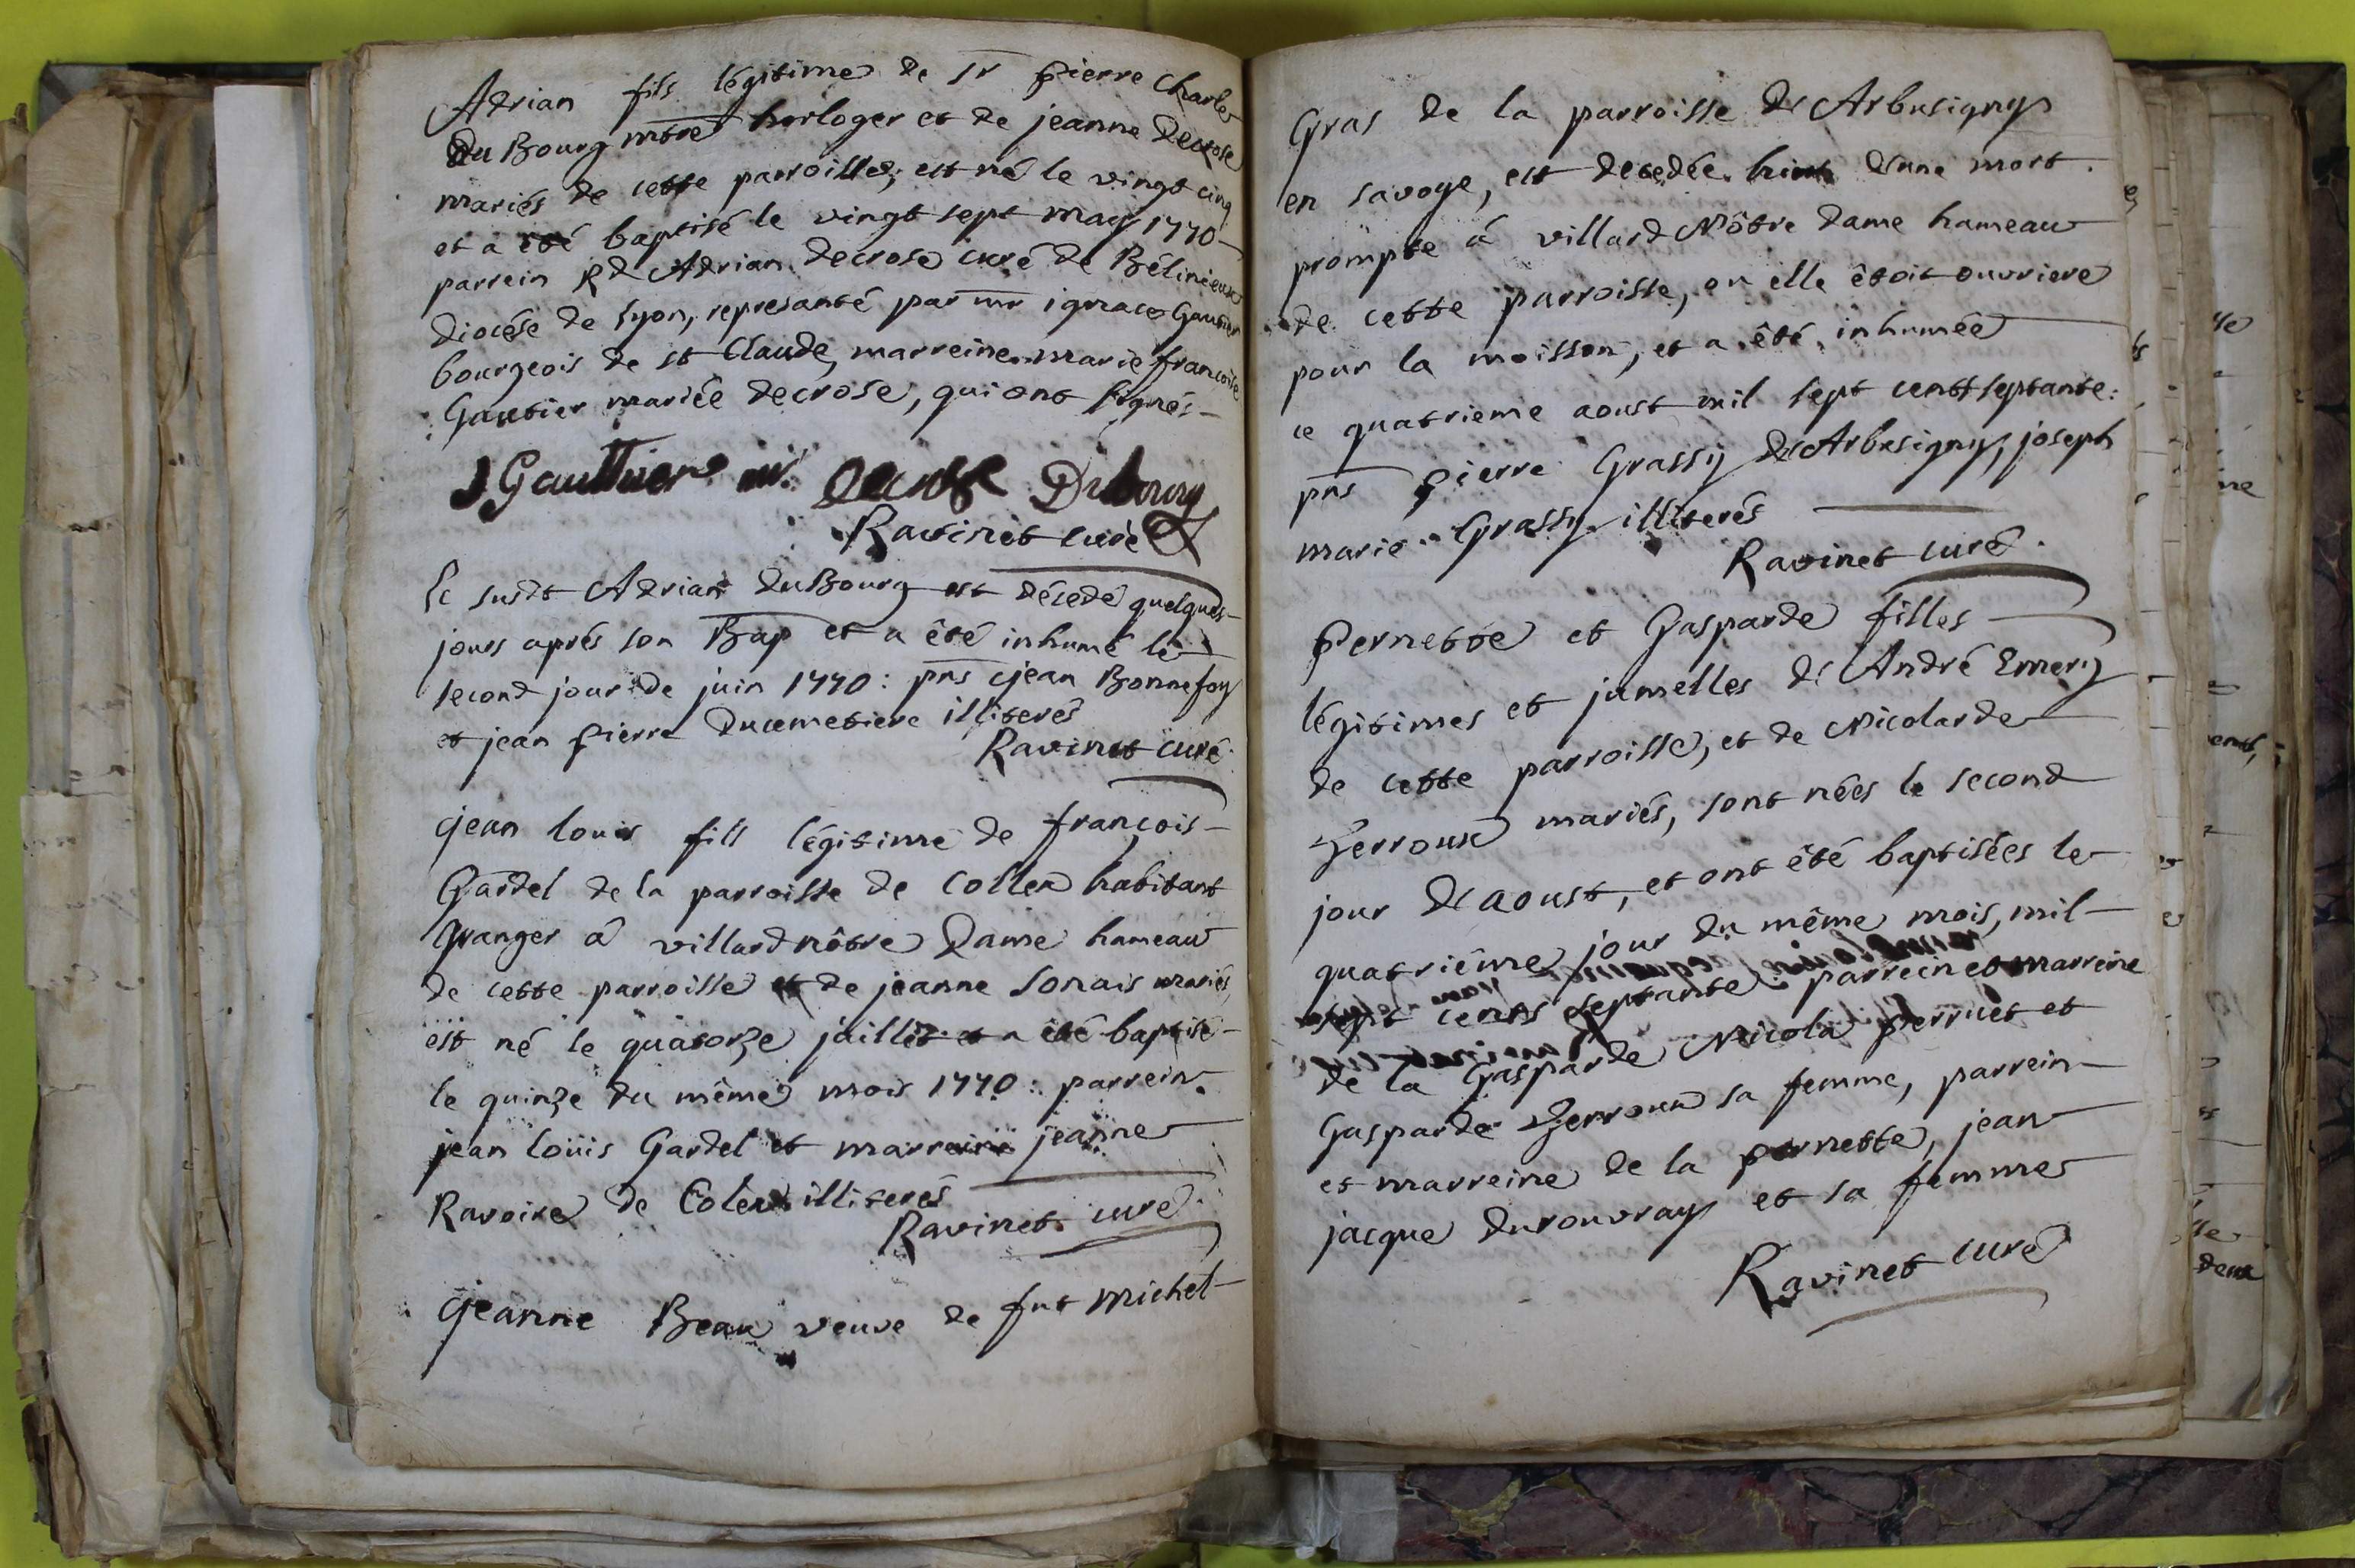 Adrian fils légitime de sr pierre Charles
Du Bourg mtre horloger et de jeanne Decrose
mariés de cette parroisse, est né le vingt cinq
et a été baptisé le vingt sept may 1770
parrein Rd Adrian decrose curé de Bélinieux
diocése de lyon, represanté par mr ignace Gautier
bourgeois de st Claude, marreine marie francoise
Gautier mariée decrose, qui ont signés
J Gauthier Decrose Dubourg
Ravinet curé
Le susdt Adrian du Bourg est décedé quelques
jours aprés son Bap et a été inhumé le
second jour de juin 1770: pns jean Bonnefoy
et jean pierre Ducemetiere illiterés
Ravinet curé
jean louis fils légitime de françois
Gardel de la parroisse de Collex habitant
Granger à villard nôtre Dame hameau
de cette parroisse et de jeanne Sonais mariés,
est né le quatorze juillet et a été baptisé
le quinze du même mois 1770: parrein
jean loüis Gardel et marreine jeanne
Ravoire de Colex illiterés
Ravinet curé
jeanne Beau veuve de fut michel
Gras de la parroisse d'Arbusigny
en savoye, est decedée d'une mort
prompte à villard Nôtre Dame hameau
de cette parroisse, ou elle êtoit ouvriere
pour la moisson, et a été inhumée
ce quatrieme aoust mil sept cent septante:
pns pierre Grassy d'Arbusigny, joseph
marie Grassy illiterés
Ravinet curé
Pernette et Gasparde filles
légitimes et jumelles d'André Emery
de cette parroisse, et de Nicolarde
Zerroux mariés, sont nées le second
jour d'aoust, et ont été baptisées le
quatriême jour du même mois, mil
sept cents septante: parrein et marreine
de la Gasparde Nicola perruet et
Gasparde Zerroux sa femme, parrein
et marreine de la pernette, jean
jacque durouvray et sa femme
Ravinet curé